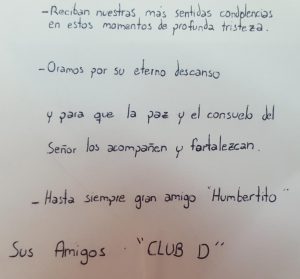 - Reciban nuestras más sentidas condolencias
en estos momentos de profunda tristeza.
- Oramos por su eterno descanso
y para que la paz y el consuelo del
Señor los acompañen y fortalezcan.
- Hasta siempre gran amigo "Humbertito"
Sus Amigos. "CLUB D"